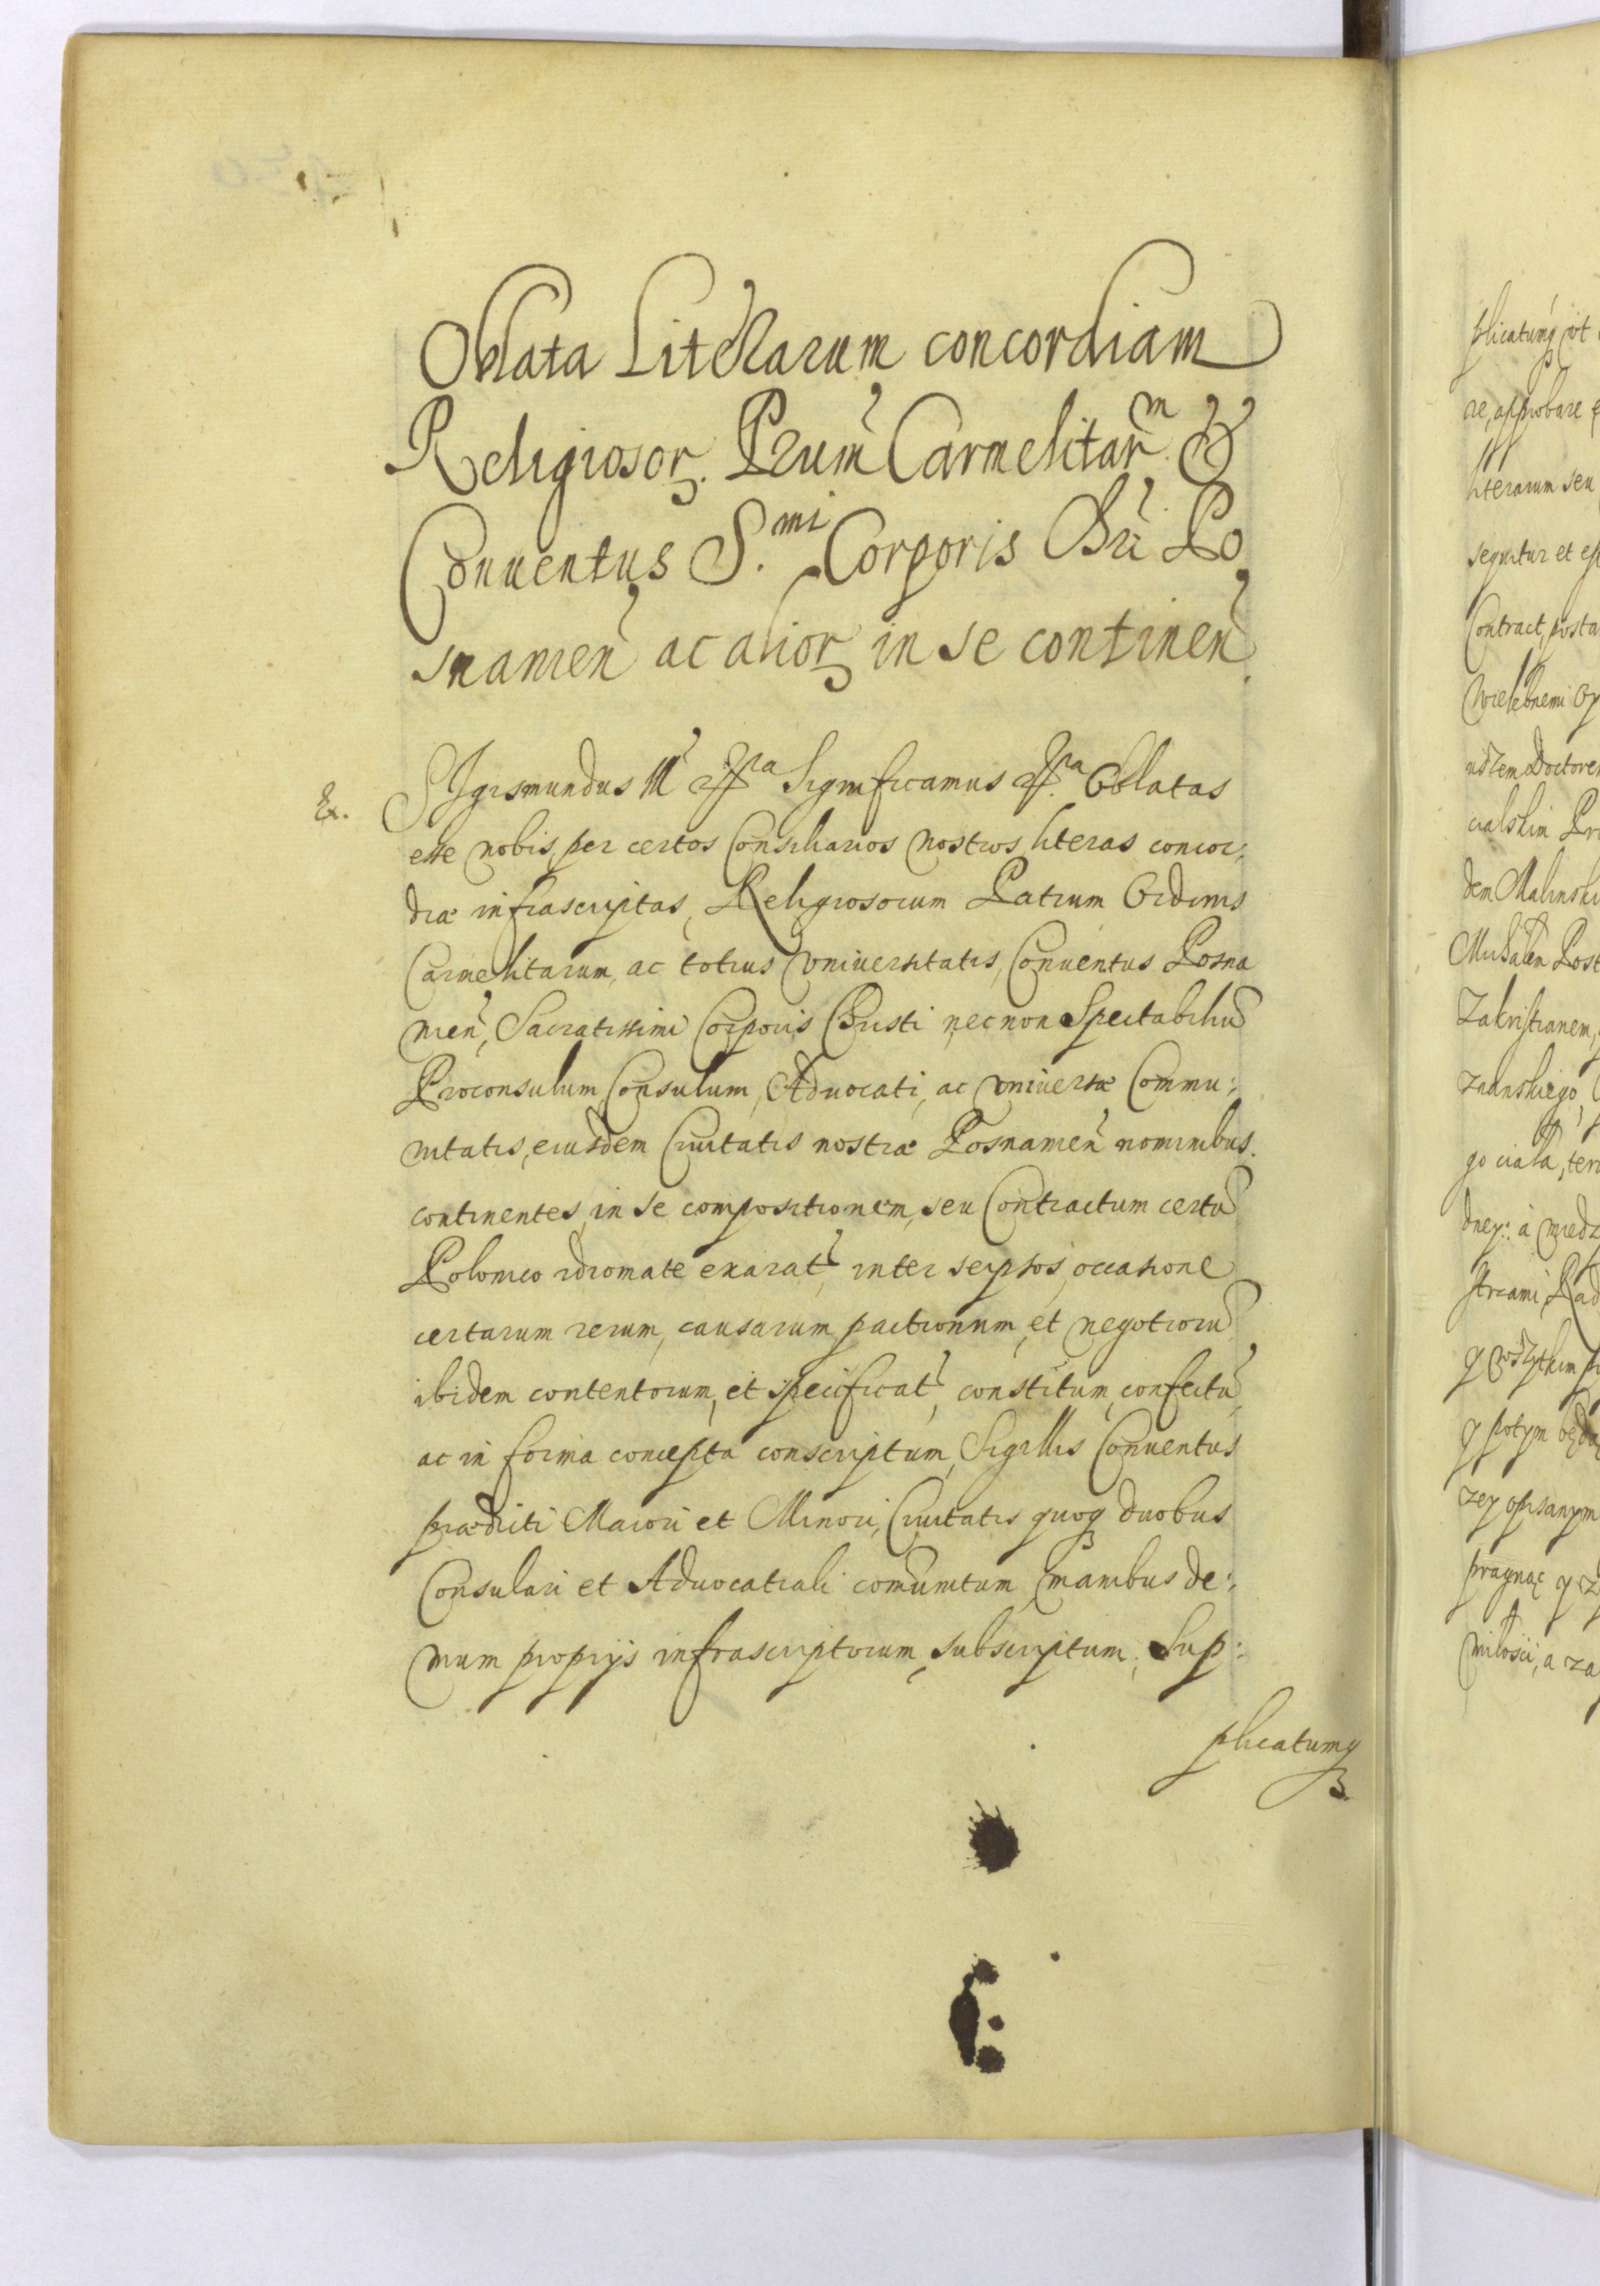 Oblata Literarum concordiam
Religiosor. Prum Carmelitar.m &
Conuentus S.mi Corporis Chri Po
snanien ac alior in se continen
Ex. Sigismundus III Significamus Oblatas
esse nobis, per certos Consiliarios nostros literas concor:
diæ infrascriptas, Religiosorum Patrum Ordinis
Carmelitarum, ac totius Vniuersitatis, Conuentus Posna
nien, Sacratissimi Corporis Christi, necnon Spectabiliu
Proconsulum, Consulum, Aduocati, ac vniuersæ Commu:
nitatis, eiusdem Ciuitatis nostræ Posnanien nominibus.
continentes in se compositionem, seu Contractum certu
Polonico idiomate exarat, inter se ipsos, occasione
certarum rerum, causarum pactionum, et negotioru
ibidem contentorum, et specificat, constitum, confectu,
ac in forma concepta conscriptum, Sigillis Conuentus
prædicti Maiori et Minori, Ciuitatis quoq duobus
Consulari et Aduocatiali comunitum, manibus de:
mum proprijs infrascriptorum, subscriptum, Sup:
plicatumq
plicatumq vt
re, approbare
literarum seu
sequitur et
Contract, posta
Wielebnemi
Doctore
cialskim
dem Malinski
Zakristianem,
znanskiego
go ciała,
dney: a miedz
y potym
zey opisanym
pragnąc y
miłości, a za